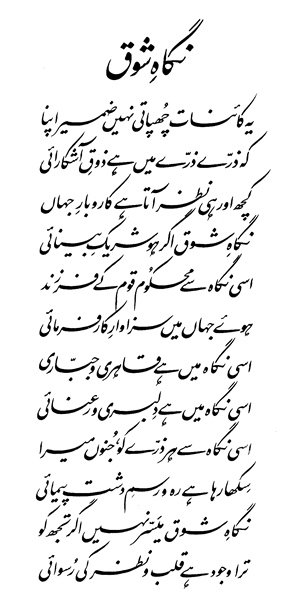 نگاہِ شوق
یہ کائنات چُھپاتی نہیں ضمیر اپنا
کہ ذرّے ذرّے میں ہے ذوقِ آشکارائی
کچھ اور ہی نظر آتا ہے کاروبارِ جہاں
نگاہِ شوق اگر ہو شریکِ بینائی
اسی نگاہ سے محکوم قوم کے فرزند
ہوئے جہاں میں سزاوارِ کار فرمائی
اسی نگاہ میں ہے قاہری و جبّاری
اسی نگاہ میں ہے دلبری و رعنائی
اسی نگاہ سے ہر ذرّے کو، جُنوں میرا
سِکھا رہا ہے رہ و رسمِ دشت پیمائی
نگاہِ شوق میّسر نہیں اگر تجھ کو
ترا وجود ہے قلب و نظر کی رُسوائی